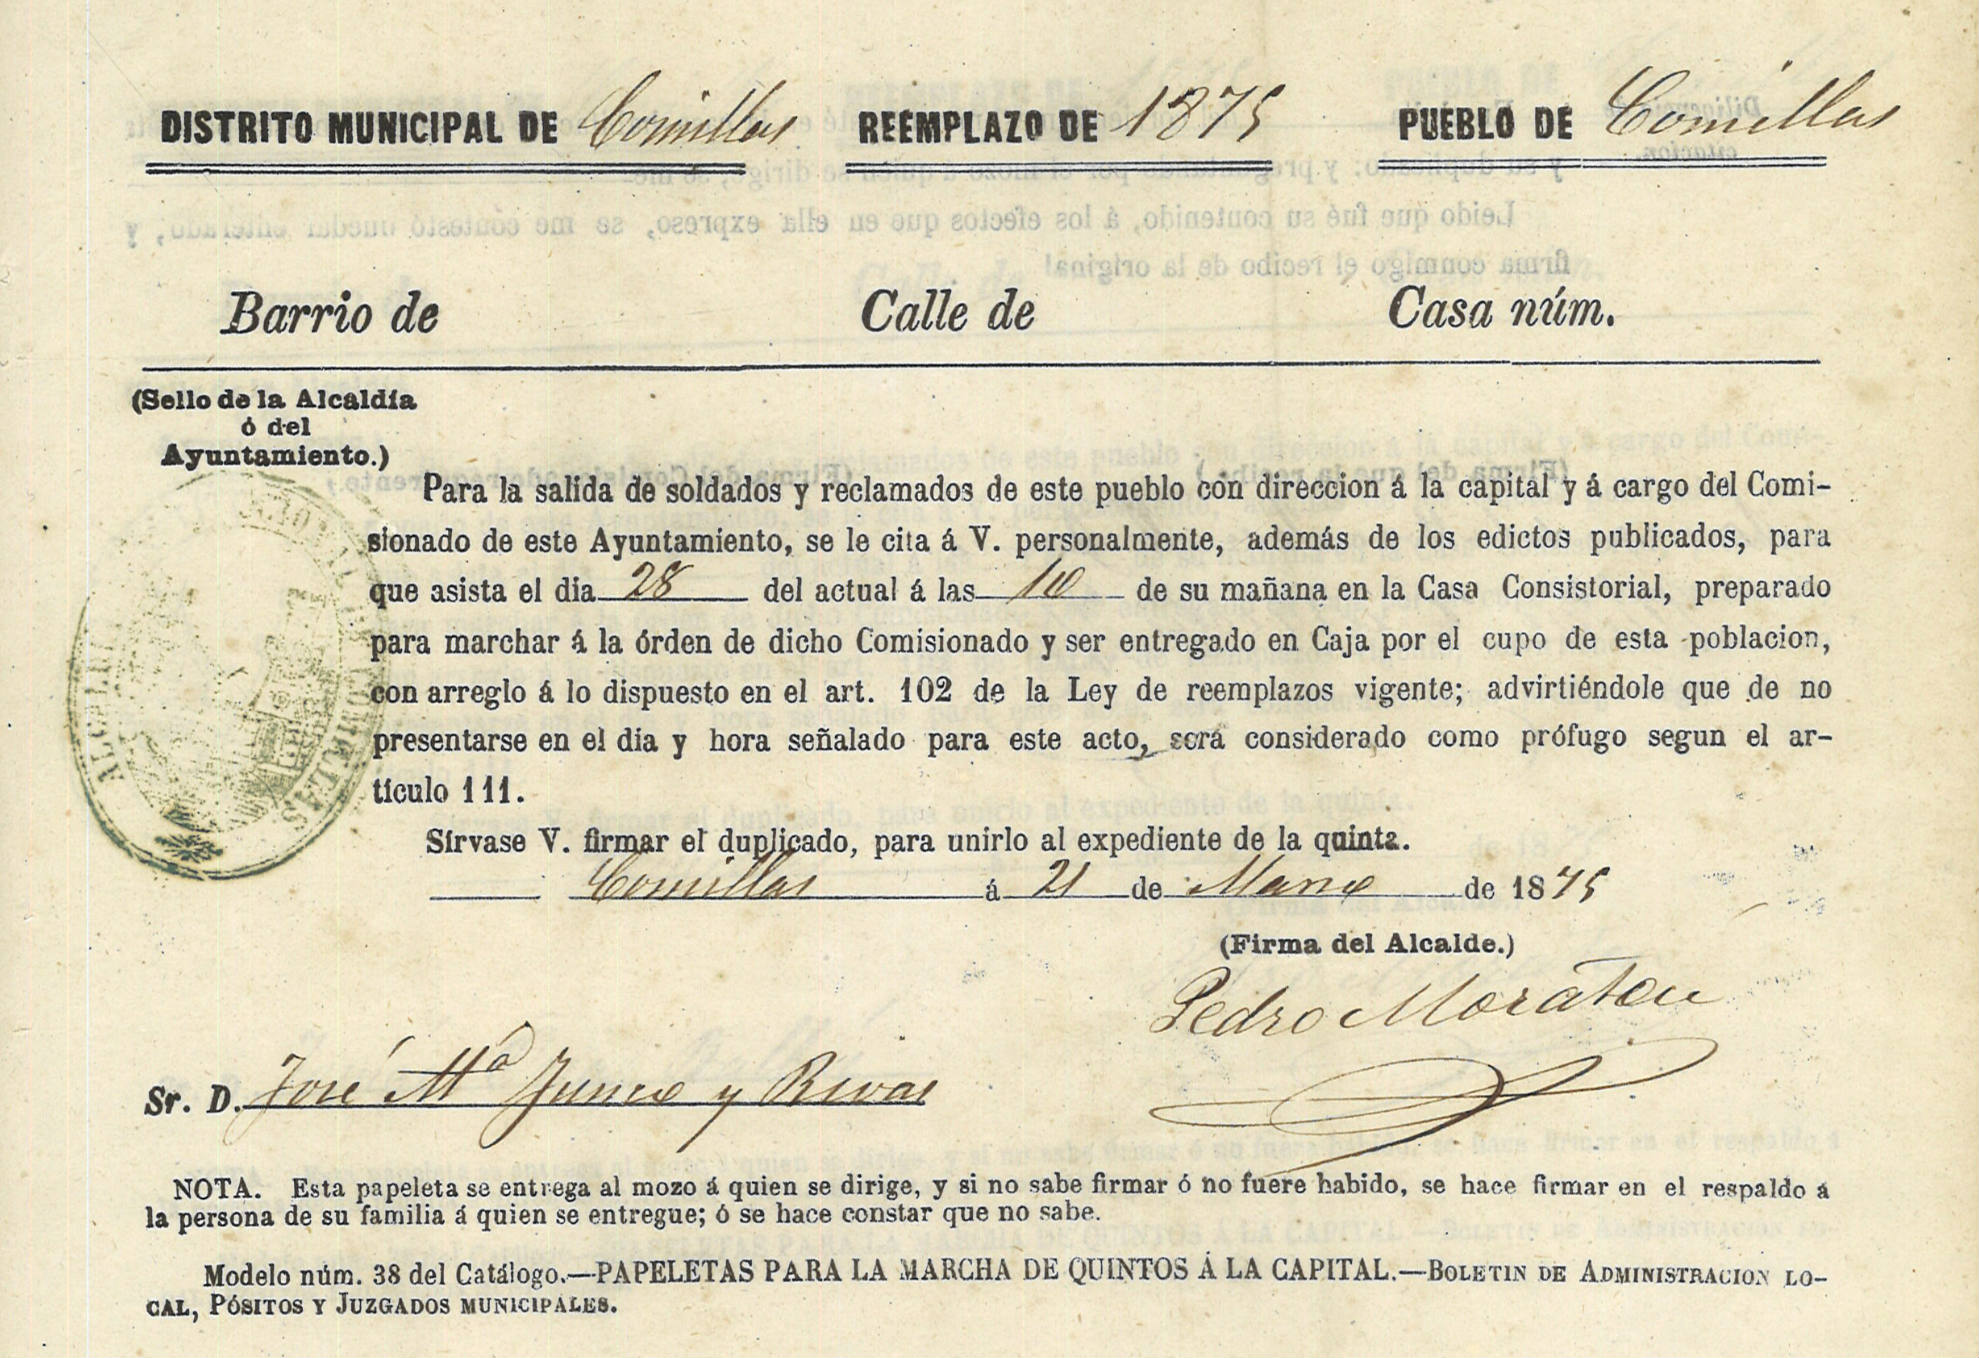 DISTRITO MUNICIPAL DE Comillas REEMPLAZO DE 1875 PUEBLO DE Comillas
Barrio de Calle de Casa núm.
(Sello de la Alcaldía
ó del
Ayuntamiento.)
Para la salida de soldados y reclamados de este pueblo con direccion á la capital y á cargo del Comi-
sionado de este Ayuntamiento, se le cita á V. personalmente, además de los edictos publicados, para
que asista el dia 28 del actual á las 10 de su mañana en la Casa Consistorial, preparado
para marchar á la órden de dicho Comisionado y ser entregado en Caja por el cupo de esta poblacion,
con arreglo á lo dispuesto en el art. 102 de la Ley de reemplazos vigente; advirtiéndole que de no
presentarse en el dia y hora señalado para este acto, será considerado como prófugo segun el ar-
tículo 111.
Sírvase V. firmar el duplicado, para unirlo al expediente de la quinta.
Comillas á 21 de Marzo de 1875
(Firma del Alcalde.)
Pedro Moratou
Sr. D. José Mª Junco y Rivas
NOTA. Esta papeleta se entrega al mozo á quien se dirige, y si no sabe firmar ó no fuere habido, se hace firmar en el respaldo á
la persona de su familia á quien se entregue; ó se hace constar que no sabe.
Modelo núm. 38 del Catálogo.—PAPELETAS PARA LA MARCHA DE QUINTOS Á LA CAPITAL.—BOLETIN DE ADMINISTRACION LO-
CAL, PÓSITOS Y JUZGADOS MUNICIPALES.